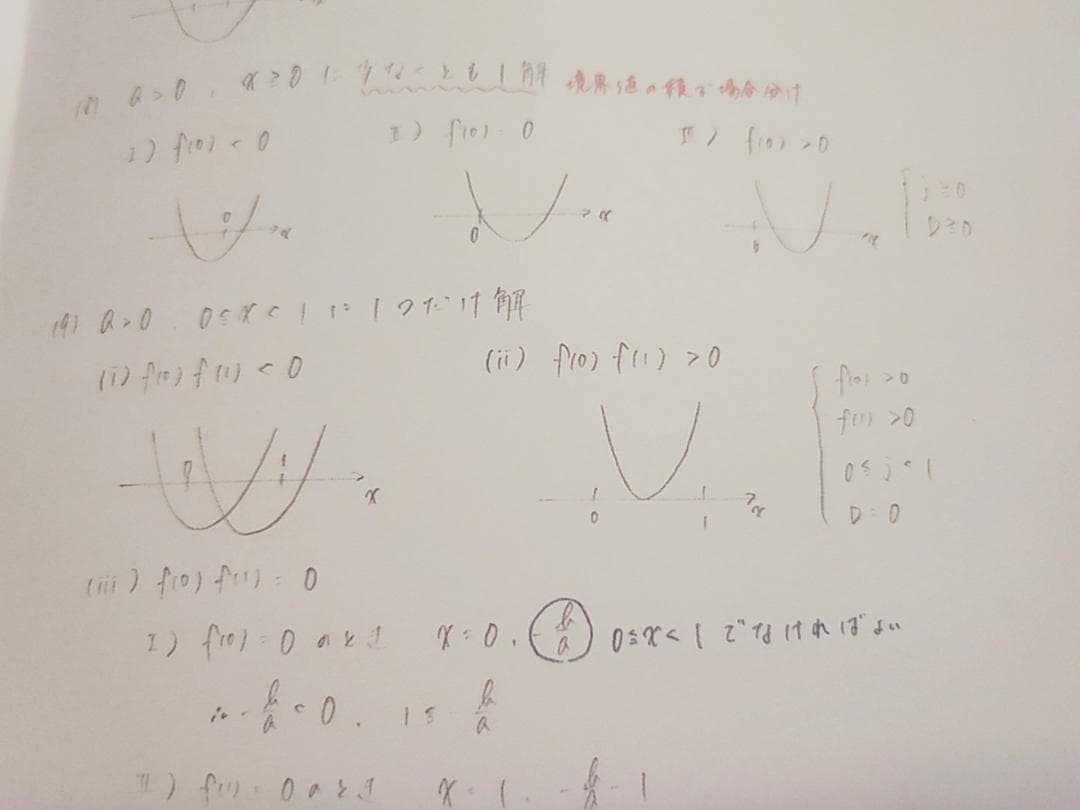 (8) a>0, x≧0に少なくとも1解 境界値の積で場合分け
I) f(0)<0 II) f(0)=0 III) f(0)>0
0 x 0 x 0 x { j≧0
D≧0
(9) a>0, 0≦x<1に1つだけ解
(i) f(0)f(1)<0 (ii) f(0)f(1)>0 { f(0)>0
f(1)>0
0 1 x 0≦j<1
0 1 x D=0
(iii) f(0)f(1)=0
I) f(0)=0のとき x=0, -b/a 0≦x<1でなければよい
∴ -b/a<0, 1≦-b/a
II) f(1)=0のとき x=1, -b/a-1